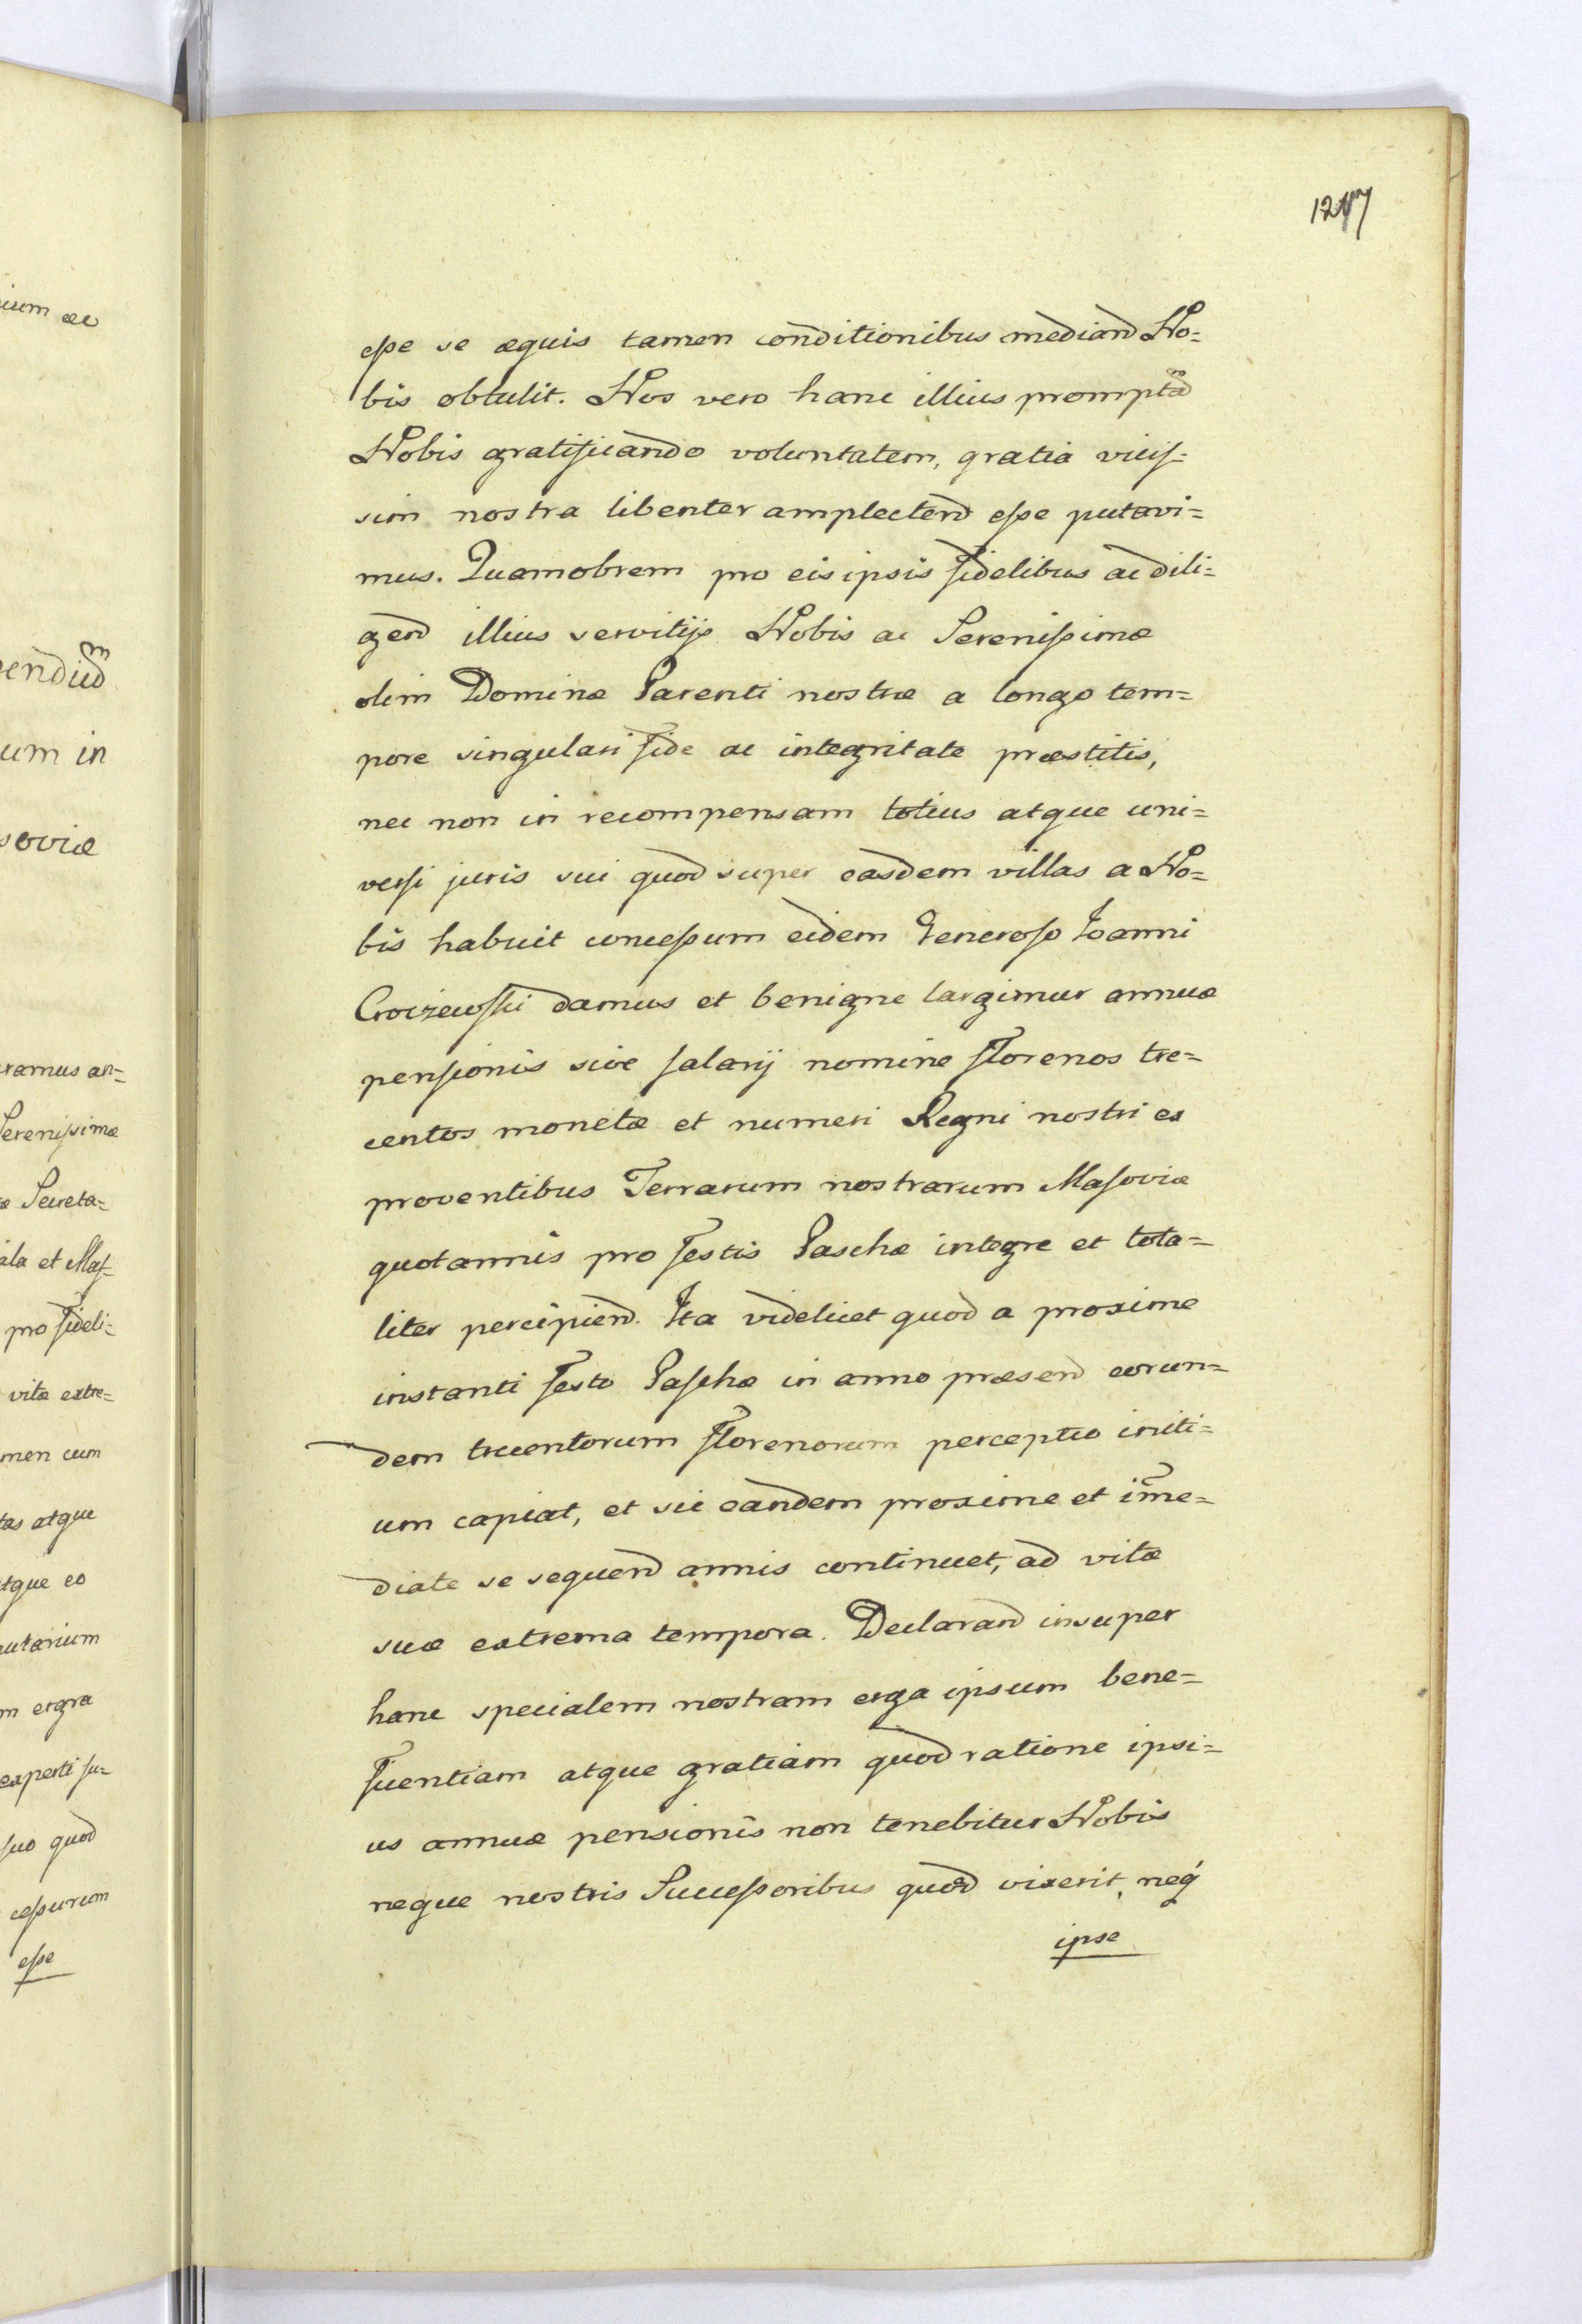 1217
esse se æquis tamen conditionibus mediand No=
bis obtulit. Nos vero hanc illius promptã
Nobis gratificando voluntatem, gratia vicis=
sim nostra libenter amplectend esse putavi=
mus. Quamobrem pro eis ipsis fidelibus ac dili=
gend illius servitijs Nobis ac Serenissimæ
olim Dominæ Parenti nostræ a longo tem=
pore singulari fide ac integritate præstitis,
nec non in recompensam totius atque uni=
versi juris sui quod super easdem villas a No=
bis habuit concessum eidem Generoso Joanni
Croizewski damus et benigne largimur annuæ
pensionis sive salarij nomine florenos tre=
centos monetæ et numeri Regni nostri ex
proventibus Terrarum nostrarum Masoviæ
quotannis pro festis Paschæ integre et tota=
liter percipiend. Ita videlicet quod a proxime
instanti festo Paschæ in anno præsend eorun=
dem trecentorum florenorum perceptio initi=
um capiat, et sic eandem proxime et im̃e=
diate se sequend annis continuet, ad vitæ
suæ extrema tempora. Declarand insuper
hanc specialem nostram erga ipsum bene=
ficentiam atque gratiam quod ratione ipsi=
us annuæ pensionis non tenebitur Nobis
neque nostris Successoribus quod vixerit, neq́
ipse
ium ac
endiũ
um in
soviæ
ramus an=
Serenissimæ
æ Secreta=
ala et Mas=
pro fideli=
vitæ extre=
men cum
tas atque
tque eo
utarium
m ergra
experti su=
suo quod
cessurum
esse